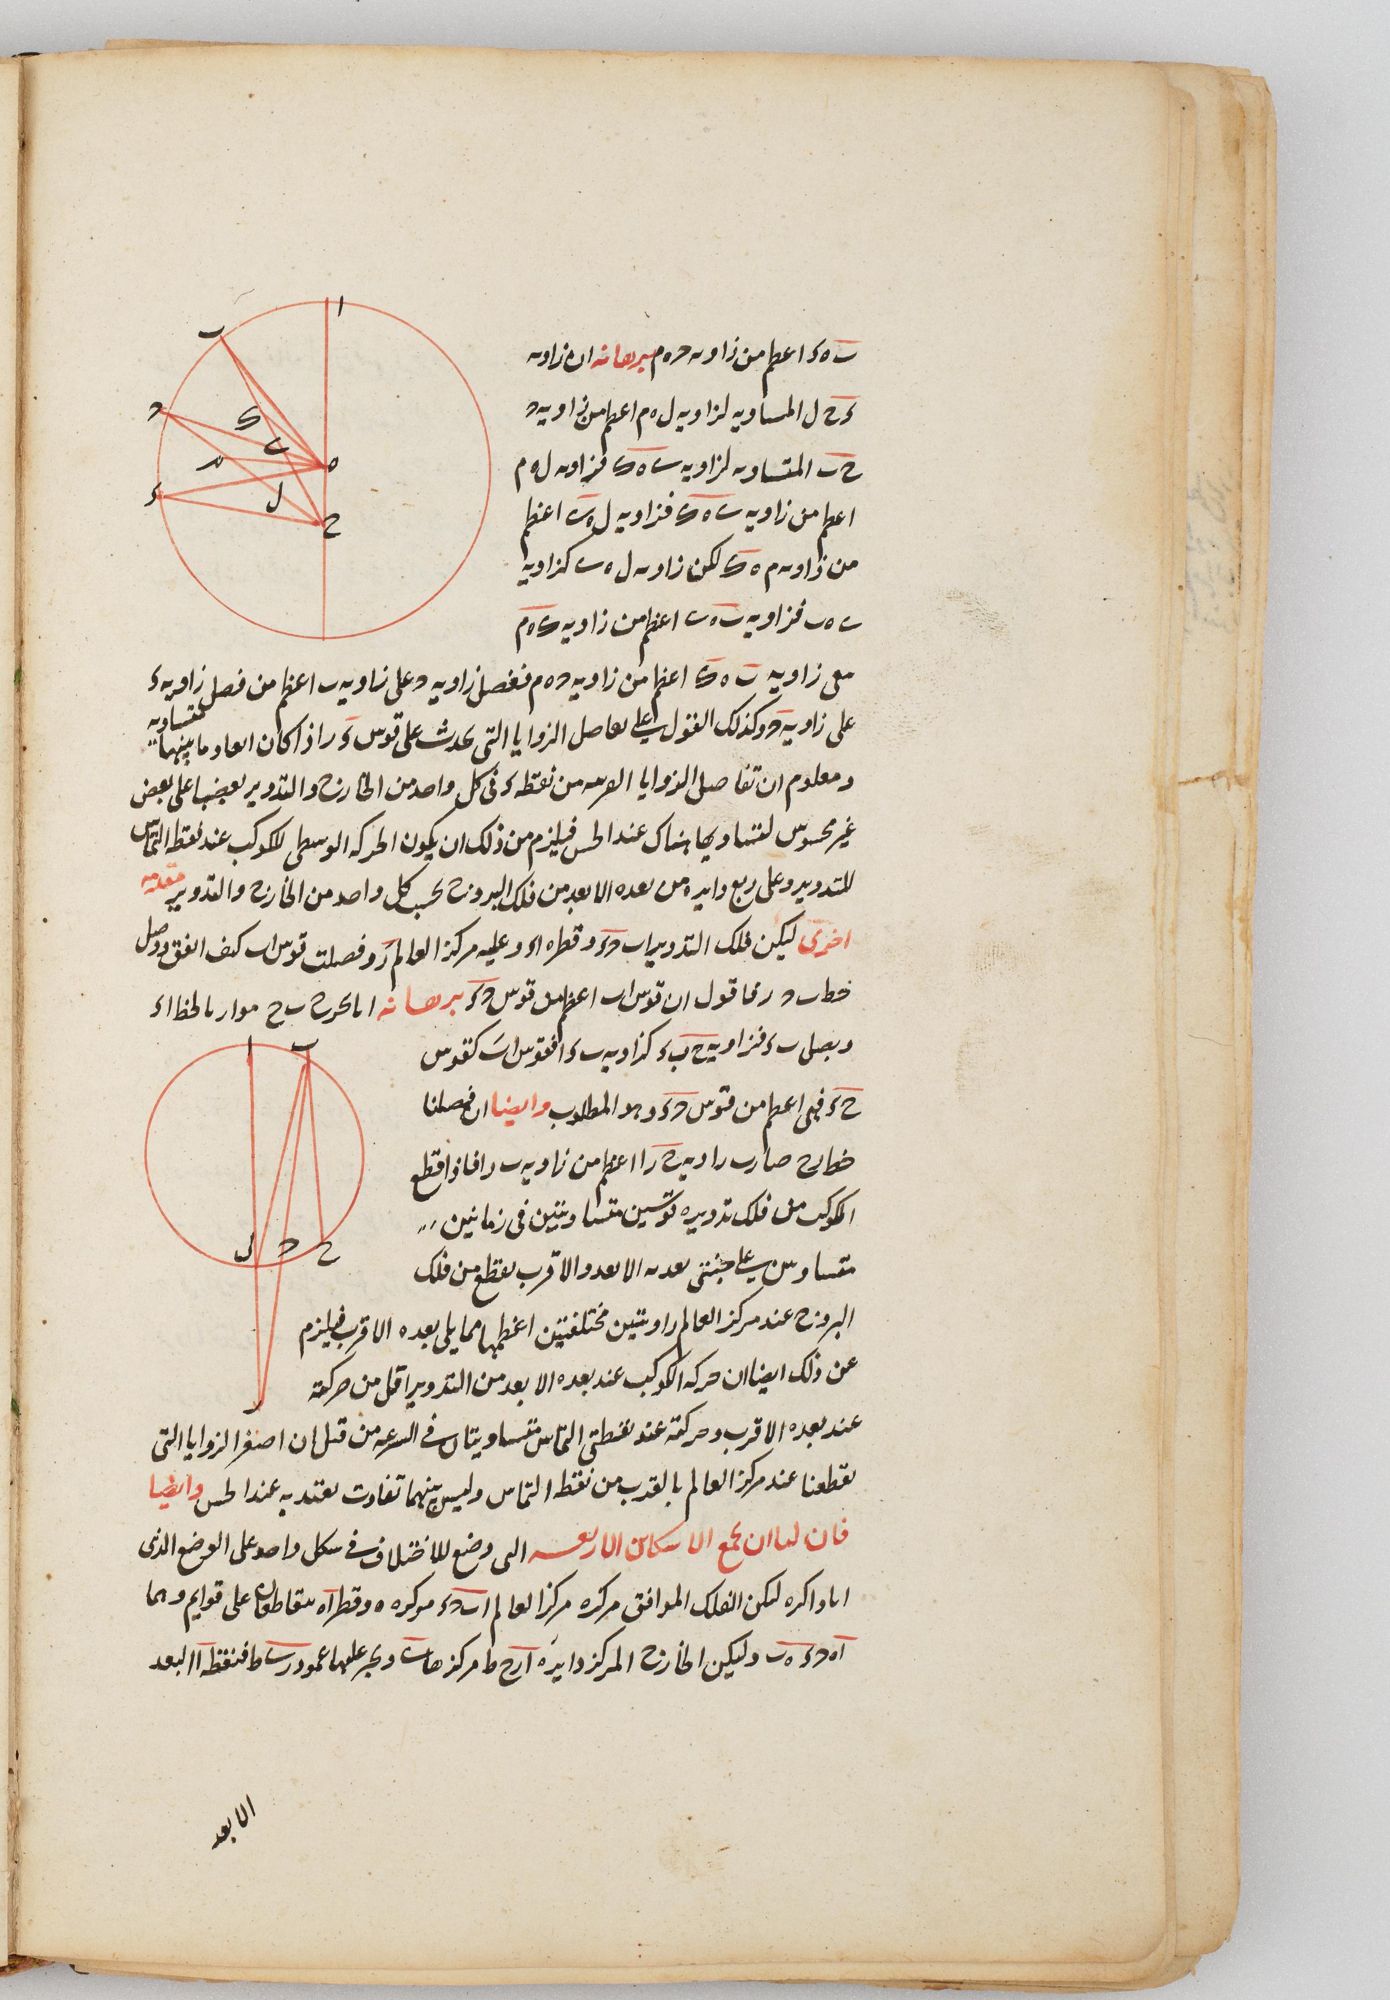 ب ه ء اعظم من زاويه د ه م برهانه ان زاويه
ء ح ل المساويه لزاويه ل ه م اعظم من زاويه د
ح ب المتساويه لزاويه ى ه ك فزاويه ل ه م
اعظم من زاويه ى ه ك فزاويه ل ه ى اعظم
من زاويه م ه ك لكن زاويه ل ه ى كزاويه
ى ه ب فزاويه ب ه ى اعظم من زاويه ك ه م
مى زاويه ب ه ك اعظم من زاويه د ه م ففصل زاويه د على زاويه ب اعظم من فصل زاويه ء
على زاويه د وكذلك القول على تفاصل الزوايا التى تحدث على قوس ء ر اذا كان ابعاد ما بينهما متساويه
ومعلوم ان تفاصل الزوايا القريبه من نقطه ء فى كل واحد من الخارج والتدوير بعضها على بعض
غير محسوس لتساويها هناك عند الحس فيلزم من ذلك ان يكون الحركه الوسطى للكوكب عند نقطه التماس
للتدوير وعلى ربع دايره من بعده الابعد من فلك البروج بحسب كل واحد من الخارج والتدوير مقدمه
اخرى ليكن فلك التدوير اب دء وقطره اء وعليه مركز العالم ر وفصلت قوس اب كيف اتفق ووصل
خط ب د ر فاقول ان قوس اب اعظم من قوس دء برهانه انا نخرج ب ح موازيا لخط اء
ونصل ب ء فزاويه ح ب ء كزاويه ب ء ا فقوس اب كقوس
ح ء فهى اعظم من قوس دء وهو المطلوب وايضا ان فصلنا
خط ا ح صارت زاويه ح ر ا اعظم من زاويه ب ر ا فاذا قطع
الكوكب من فلك تدويره قوسين متساويتين فى زمانين
متساويين على جنبتى بعديه الابعد والاقرب يقطع من فلك
البروج عند مركز العالم زاويتين مختلفتين اعظمهما مما يلى بعده الاقرب فيلزم
عن ذلك ايضا ان حركه الكوكب عند بعده الابعد من التدوير اقل من حركته
عند بعده الاقرب وحركته عند نقطتى التماس متساويتان فى السرعه من قبل ان اصغر الزوايا التى
يقطعنا عند مركز العالم بالقرب من نقطه التماس وليس بينهما تفاوت يعتد به عند الحس وايضا
فان لنا ان نجمع الاشكال الاربعه التى وضع للاختلاف فى شكل واحد على الوضع الذى
انا ذاكره ليكن الفلك الموافق مركزه مركز العالم اب دء مركزه ه وقطراه يتقاطعان على قوايم وهما
اه د ء ه ب وليكن الخارج المركز دايره ا ر ح ط مركزها ى ونجر عليها عمود ر ى ط فنقطه ا البعد
الابعد
ا
ب
د
ك
ى
ه
م
ل
ء
ح
ا
ب
ء
د
ح
ر